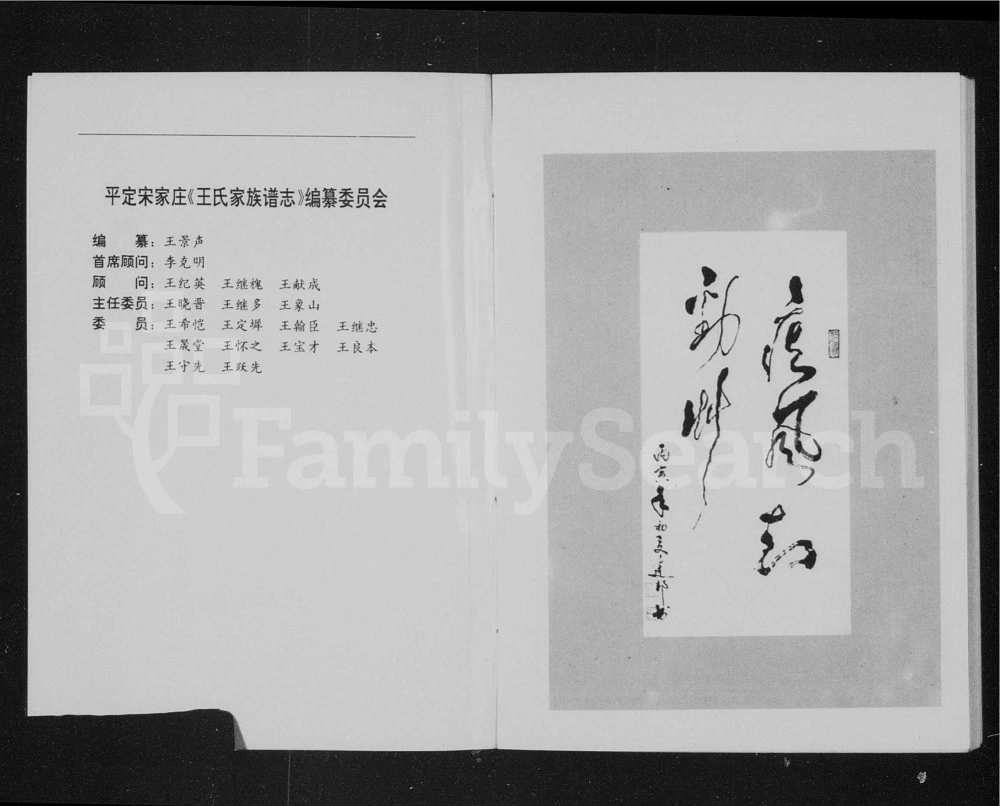 平定宋家庄《王氏家族谱志》编纂委员会
编　　纂：王景声
首席顾问：李克明
顾　　问：王纪英　王继槐　王献成
主任委员：王晓晋　王继多　王象山
委　　员：王希恺　王定墀　王翰臣　王继忠
王晟堂　王怀之　王宝才　王良本
王守先　王跃先
疾风知
劲草
丙寅年初夏建邦书
FamilySearch